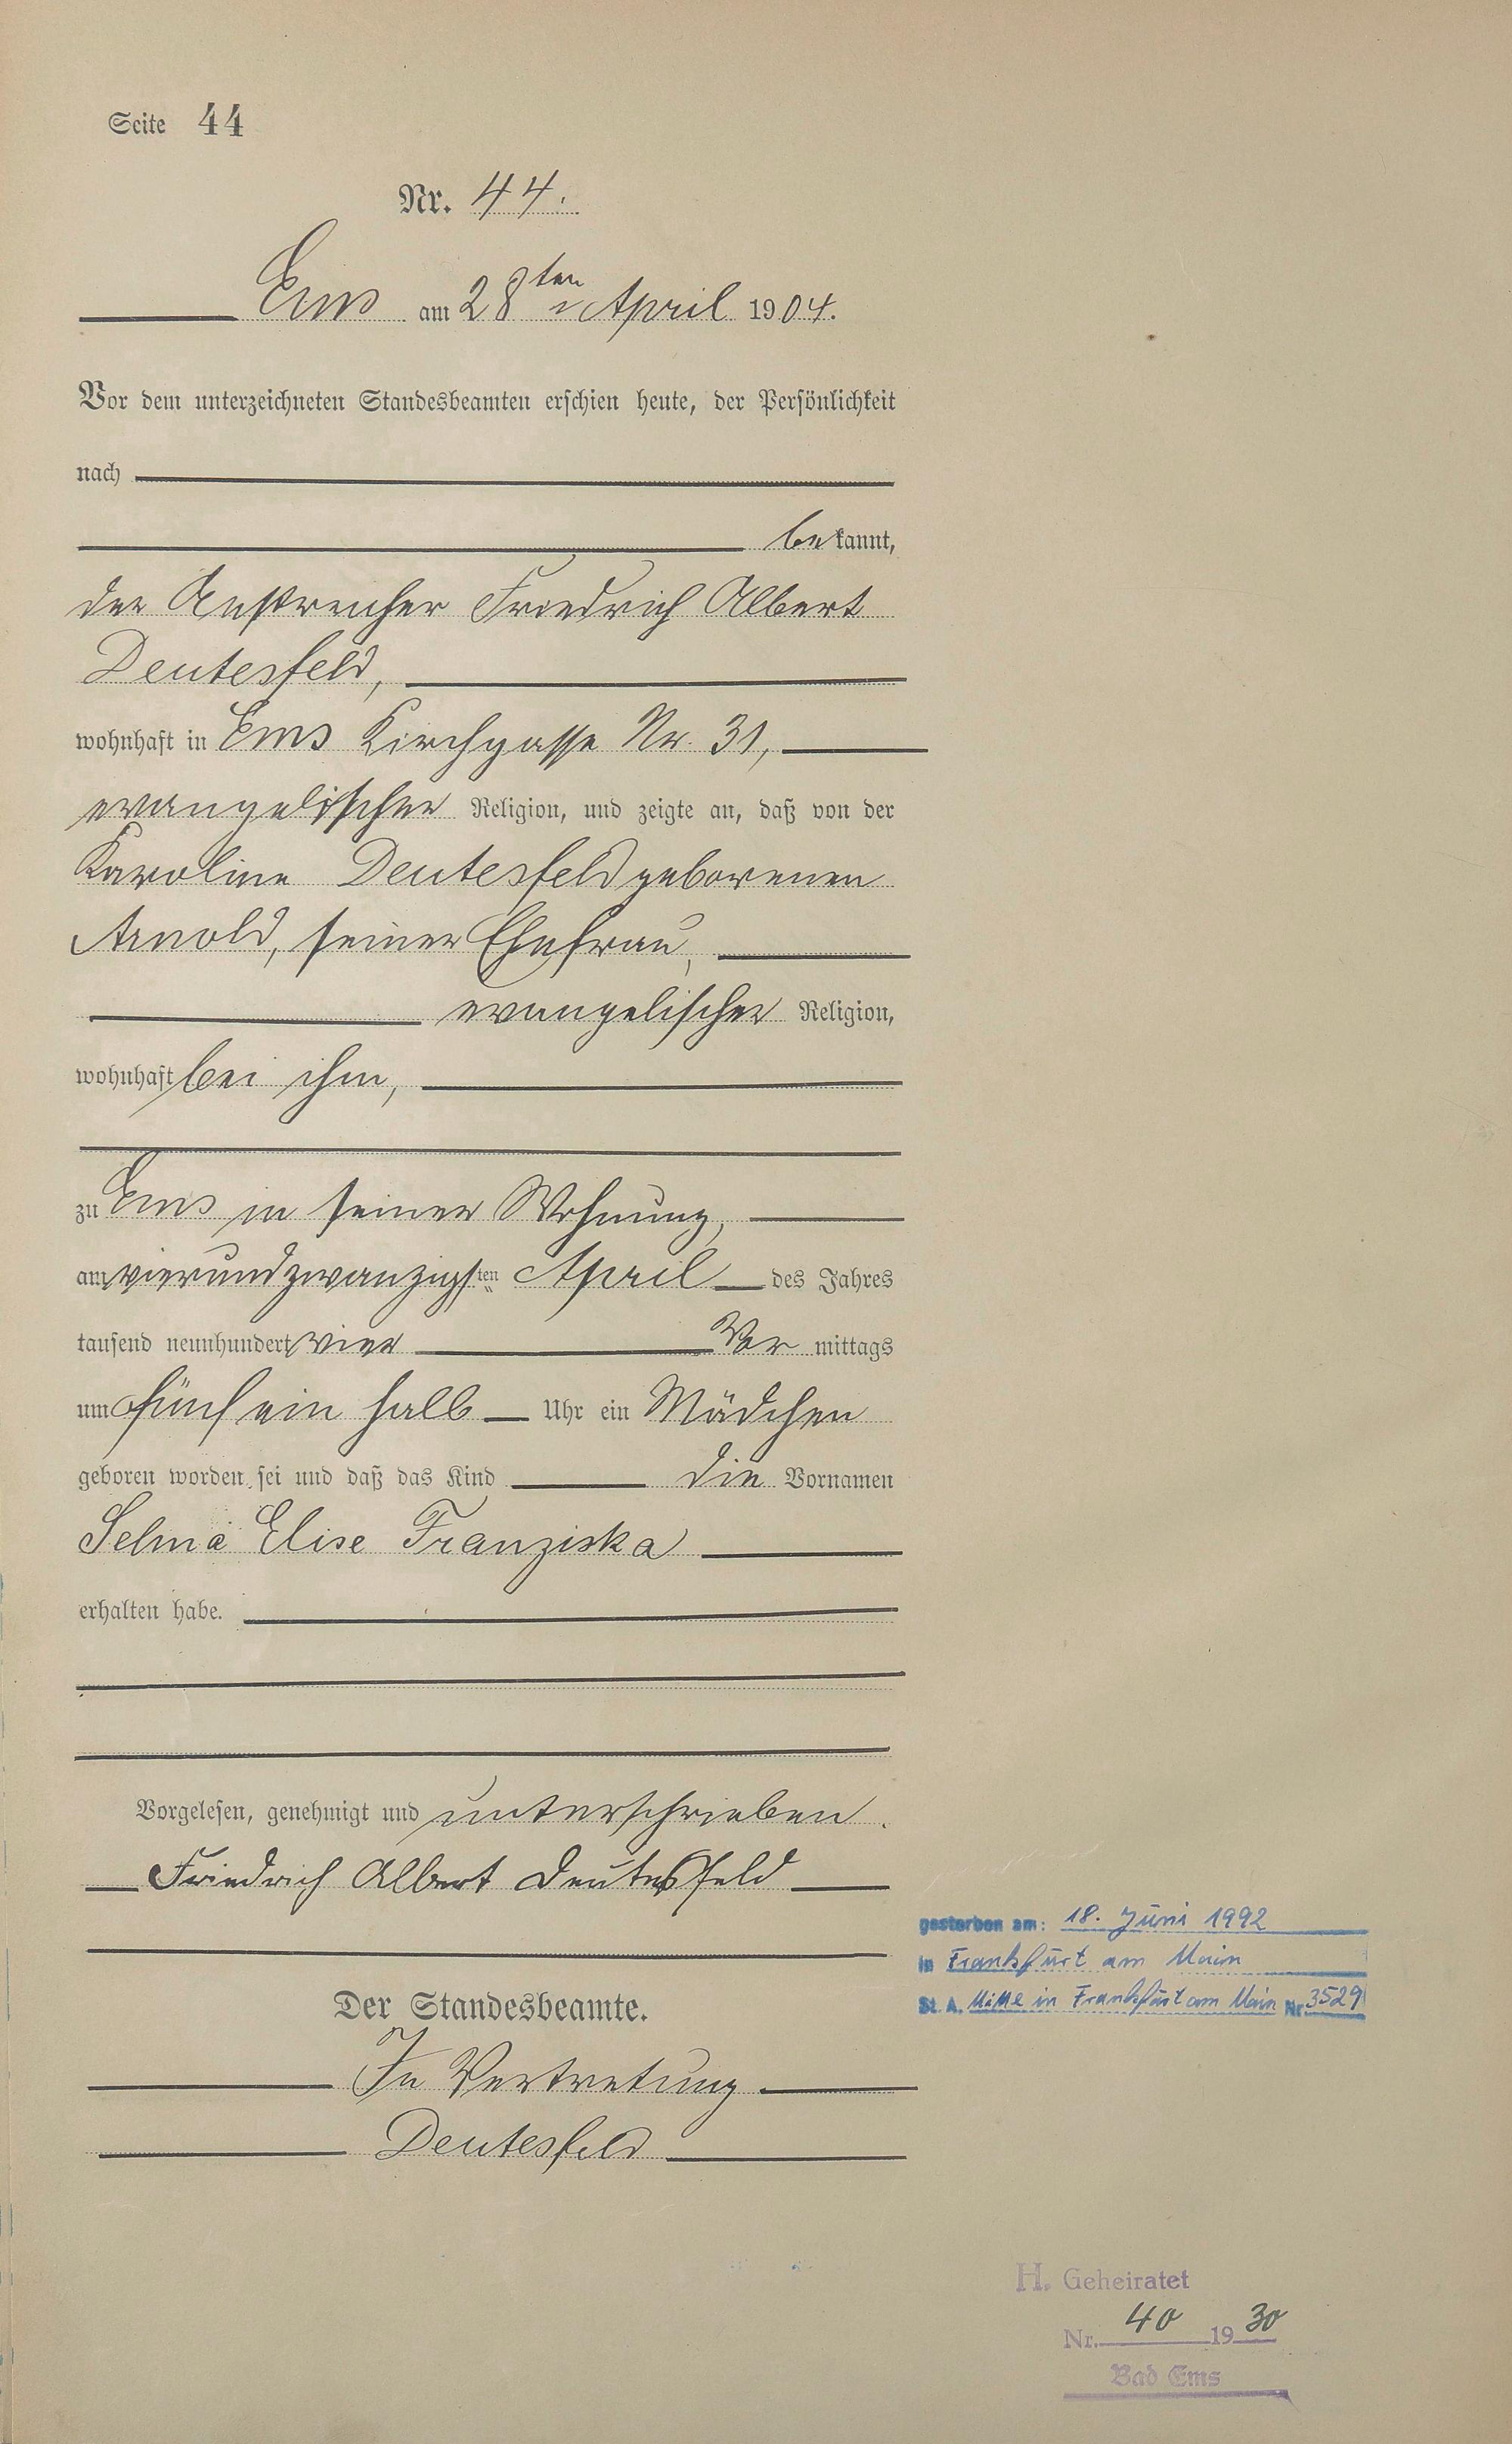 Seite 44
Nr. 44.
Ems am 28ten April 1904.
Vor dem unterzeichneten Standesbeamten erschien heute, der Persönlichkeit
nach
bekannt,
der Anstreicher Friedrich Albert
Deutesfeld,
wohnhaft in Ems Kirchgasse Nr. 31,
evangelischer Religion, und zeigte an, daß von der
Karoline Deutesfeld geborenen
Arnold, seiner Ehefrau,
evangelischer Religion,
wohnhaft bei ihm,
zu Ems in seiner Wohnung,
am vierundzwanzigsten April des Jahres
tausend neunhundert vier Vormittags
um fünf ein halb Uhr ein Mädchen
geboren worden sei und daß das Kind die Vornamen
Selma Elise Franziska
erhalten habe.
Vorgelesen, genehmigt und unterschrieben.
Friedrich Albert Deutesfeld
gestorben am: 18. Juni 1992
in Frankfurt am Main
St. A. Mitte in Frankfurt am Main Nr. 3529
Der Standesbeamte.
In Vertretung
Deutesfeld
H. Geheiratet
Nr. 40 1930
Bad Ems